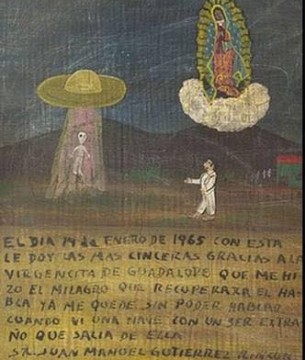 EL DIA 14 de ENERO DE 1965 CON ESTA
LE DOY LAS MAS CINCERAS GRACIAS A LA
VIRGENCITA DE GUADALUPE QUE ME HI
ZO EL MILAGRO QUE RECUPERARA EL HA-
BLA YA ME QUEDE SIN PODER HABLAR
CUANDO VI UNA NAVE CON UN SER EXTRA
ÑO QUE SALIA DE ELLA
SR. JUAN MANUEL GUTIERREZ